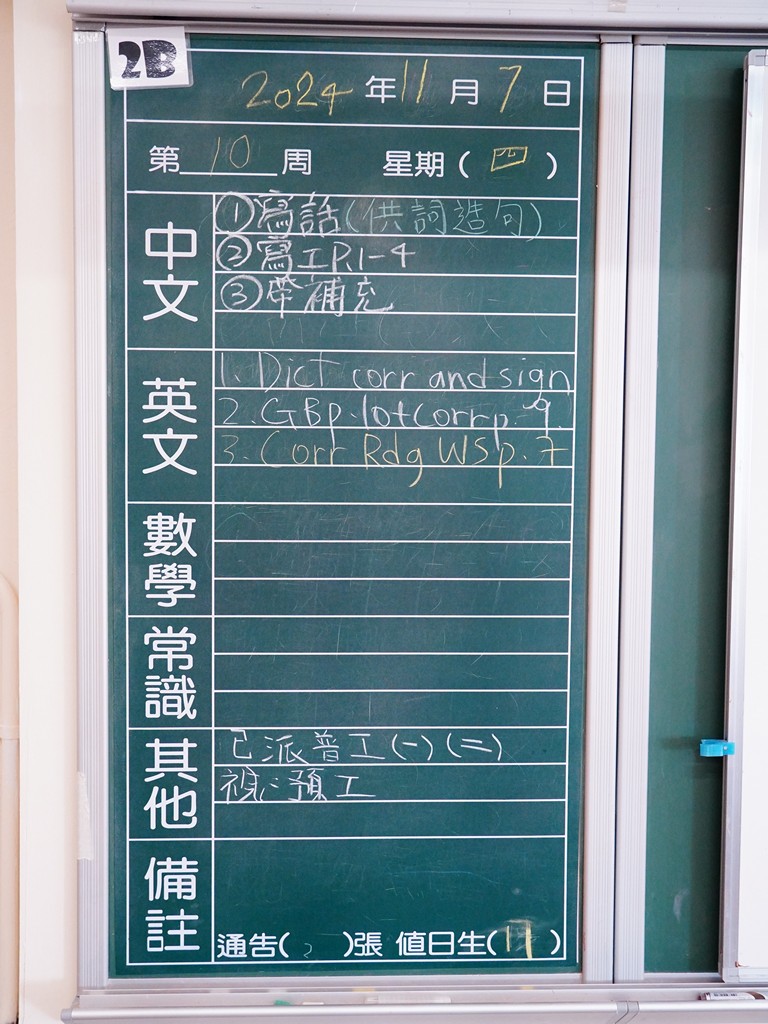 2B
2024 年 11 月 7 日
第 10 周 星期 ( 四 )
中文
①寫話(供詞造句)
②寫工P.1-4
③帶補充
英文
1. Dict corr and sign
2. GB p.10+corr p. 9.
3. Corr Rdg WS p. 7
數學
常識
其他
已派普工(一)(二)
視:預工
備註
通告( )張 值日生(11)